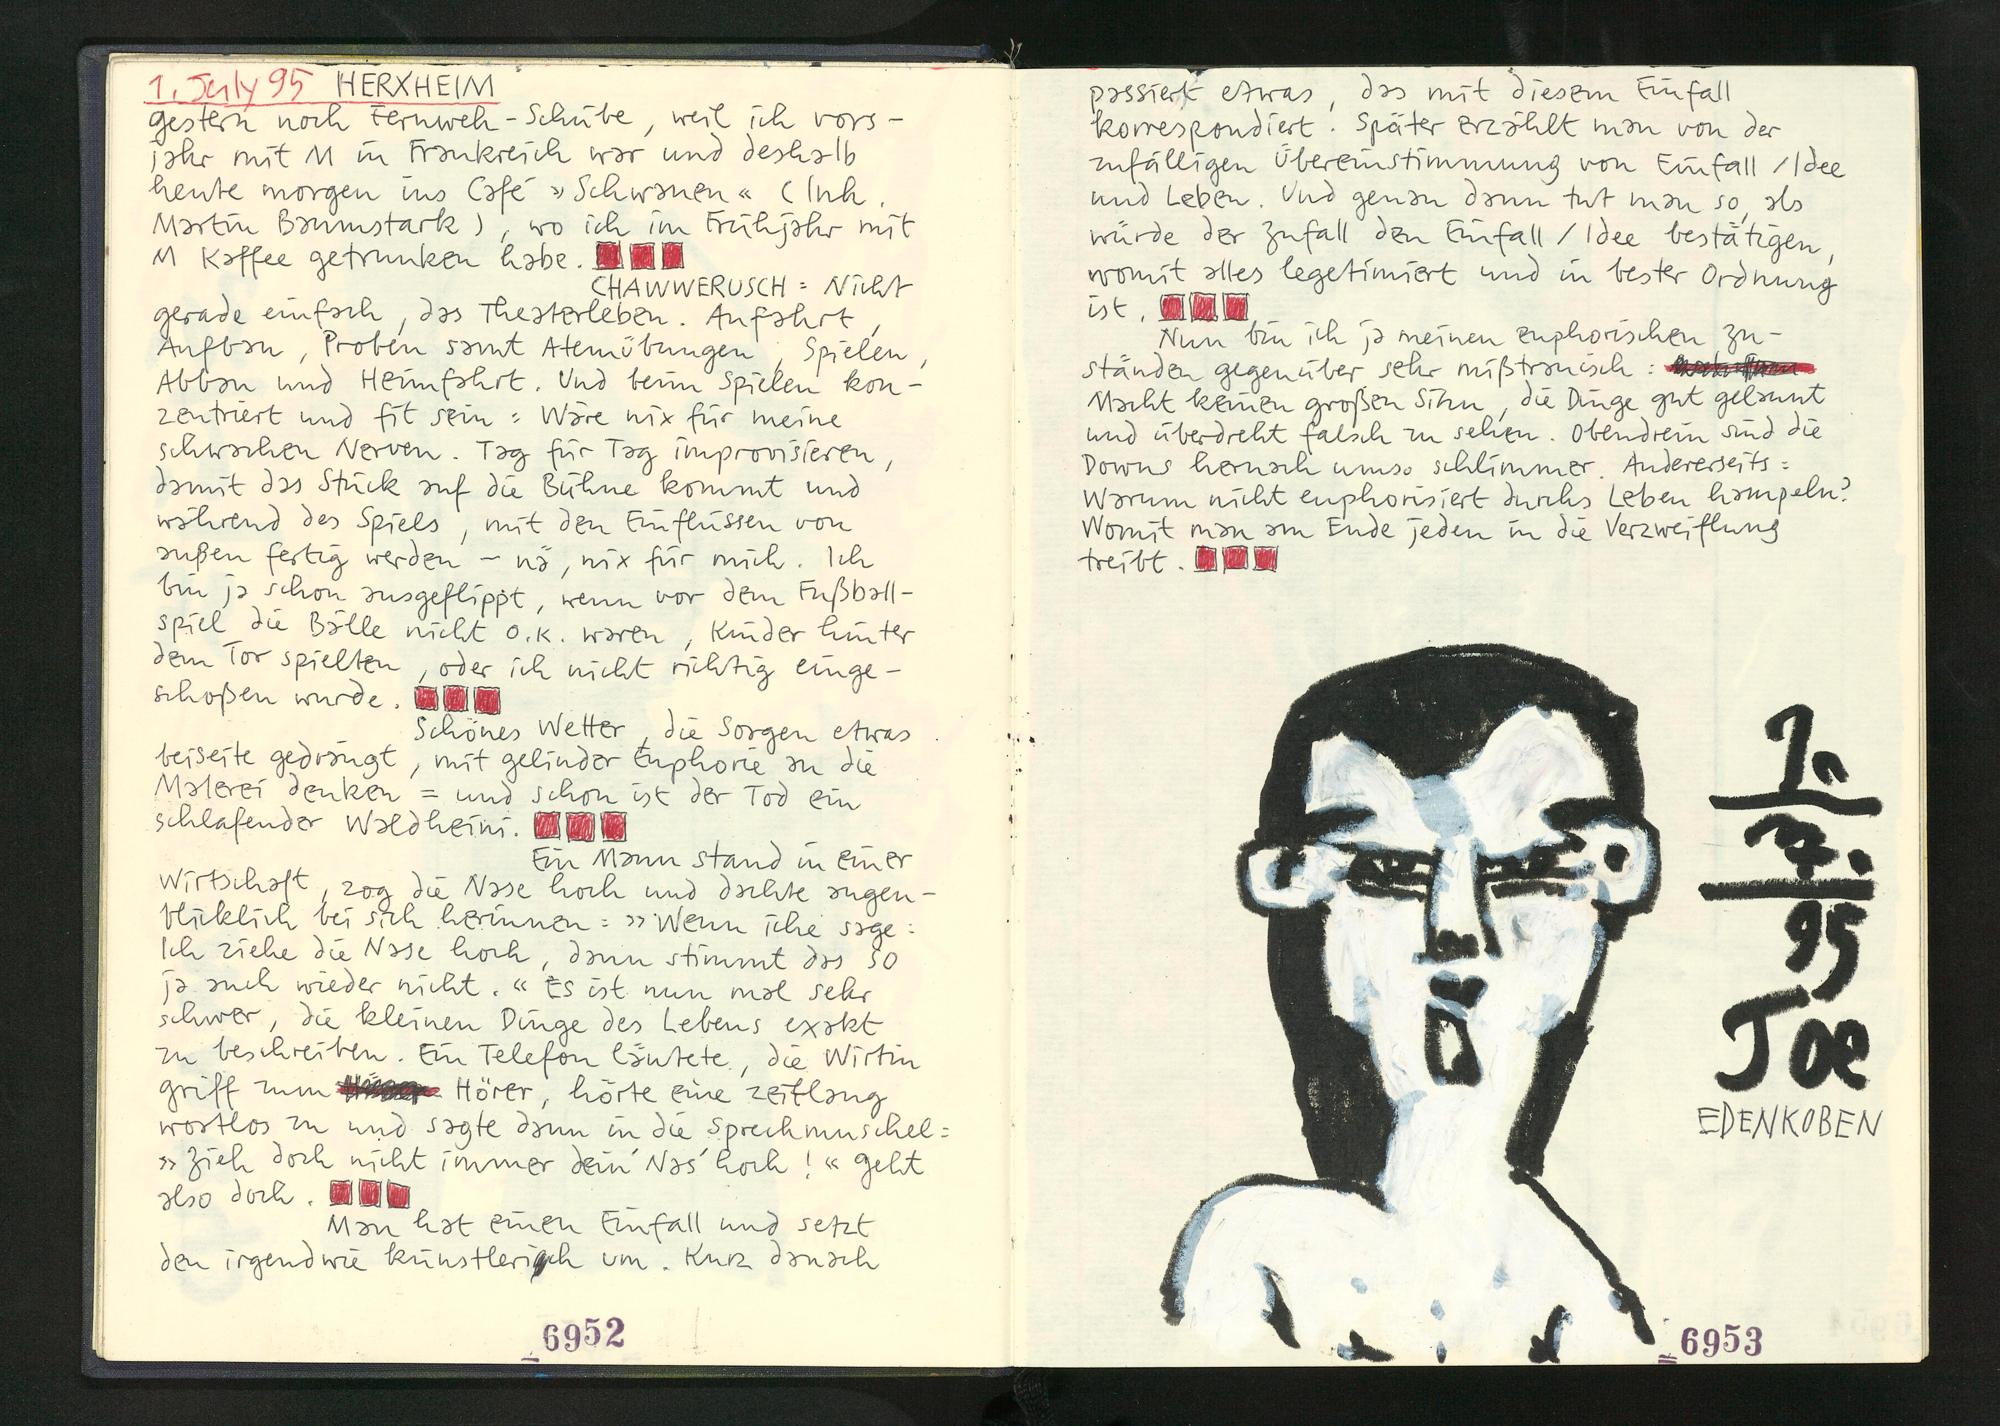 1. July 95 HERXHEIM
gestern noch Fernweh-Schübe, weil ich vors-
jahr mit M in Frankreich war und deshalb
heute morgen ins Café »Schwanen« (Inh.
Martin Baumstark), wo ich im Frühjahr mit
M Kaffee getrunken habe.
CHAWWERUSCH = Nicht
gerade einfach, das Theaterleben. Anfahrt,
Aufbau, Proben samt Atemübungen, Spielen,
Abbau und Heimfahrt. Und beim Spielen kon-
zentriert und fit sein = Wäre nix für meine
schwachen Nerven. Tag für Tag improvisieren,
damit das Stück auf die Bühne kommt und
während des Spiels, mit den Einflüssen von
außen fertig werden – nä, nix für mich. Ich
bin ja schon ausgeflippt, wenn vor dem Fußball-
spiel die Bälle nicht o.k. waren, Kinder hinter
dem Tor spielten, oder ich nicht richtig einge-
schoßen wurde.
Schönes Wetter, die Sorgen etwas
beiseite gedrängt, mit gelinder Euphorie an die
Malerei denken = und schon ist der Tod ein
schlafender Waldheini.
Ein Mann stand in einer
Wirtschaft, zog die Nase hoch und dachte augen-
blicklich bei sich herinnen = »Wenn iche sage:
Ich ziehe die Nase hoch, dann stimmt das so
ja auch wieder nicht.« Es ist nun mal sehr
schwer, die kleinen Dinge des Lebens exakt
zu beschreiben. Ein Telefon läutete, die Wirtin
griff zum Hörer, hörte eine zeitlang
wortlos zu und sagte dann in die Sprechmuschel=
»Zieh doch nicht immer dein' Nas' hoch!« geht
also doch.
Man hat einen Einfall und setzt
den irgendwie künstlerisch um. Kurz danach
6952
passiert etwas, das mit diesem Einfall
korrespondiert. Später erzählt man von der
zufälligen Übereinstimmung von Einfall/Idee
und Leben. Und genau dann tut man so, als
würde der Zufall den Einfall/Idee bestätigen,
womit alles legetimiert und in bester Ordnung
ist.
Nun bin ich ja meinen euphorischen Zu-
ständen gegenüber sehr mißtrauisch:
Macht keinen großen Sinn, die Dinge gut gelaunt
und überdreht falsch zu sehen. Obendrein sind die
Downs hernach umso schlimmer. Andererseits=
Warum nicht euphorisiert durchs Leben hampeln?
Womit man am Ende jeden in die Verzweiflung
treibt.
1.
7.
95
Joe
EDENKOBEN
6953